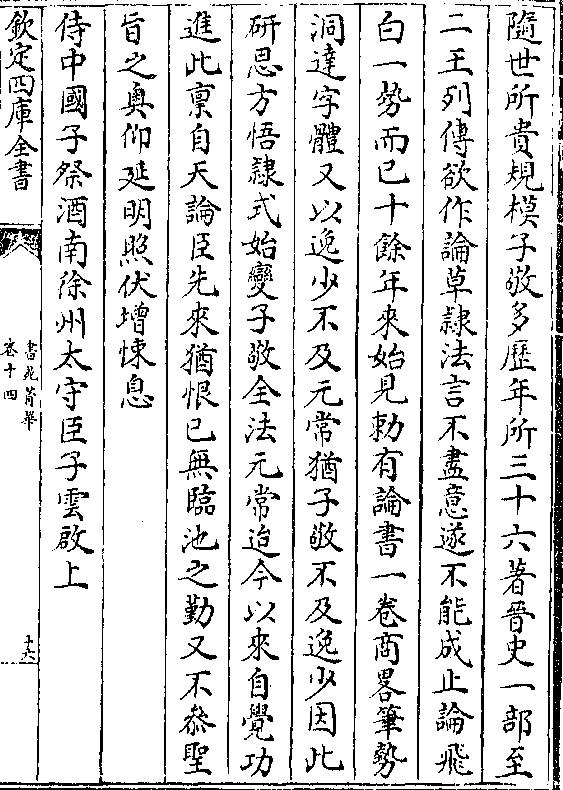 隨世所貴規模子敬多歷年所三十六著晉史一部至
二王列傳欲作論草隸法言不盡意遂不能成止論飛
白一勢而已十餘年來始見勅有論書一卷商畧筆勢
洞達字體又以逸少不及元常猶子敬不及逸少因此
研思方悟隸式始變子敬全法元常迨今以來自覺功
進此禀自天論臣先來猶恨已無臨池之勤又不叅聖
旨之奥仰延明照伏增悚息
侍中國子祭酒南徐州太守臣子雲啟上
欽定四庫全書
書苑菁華
卷十四
十六